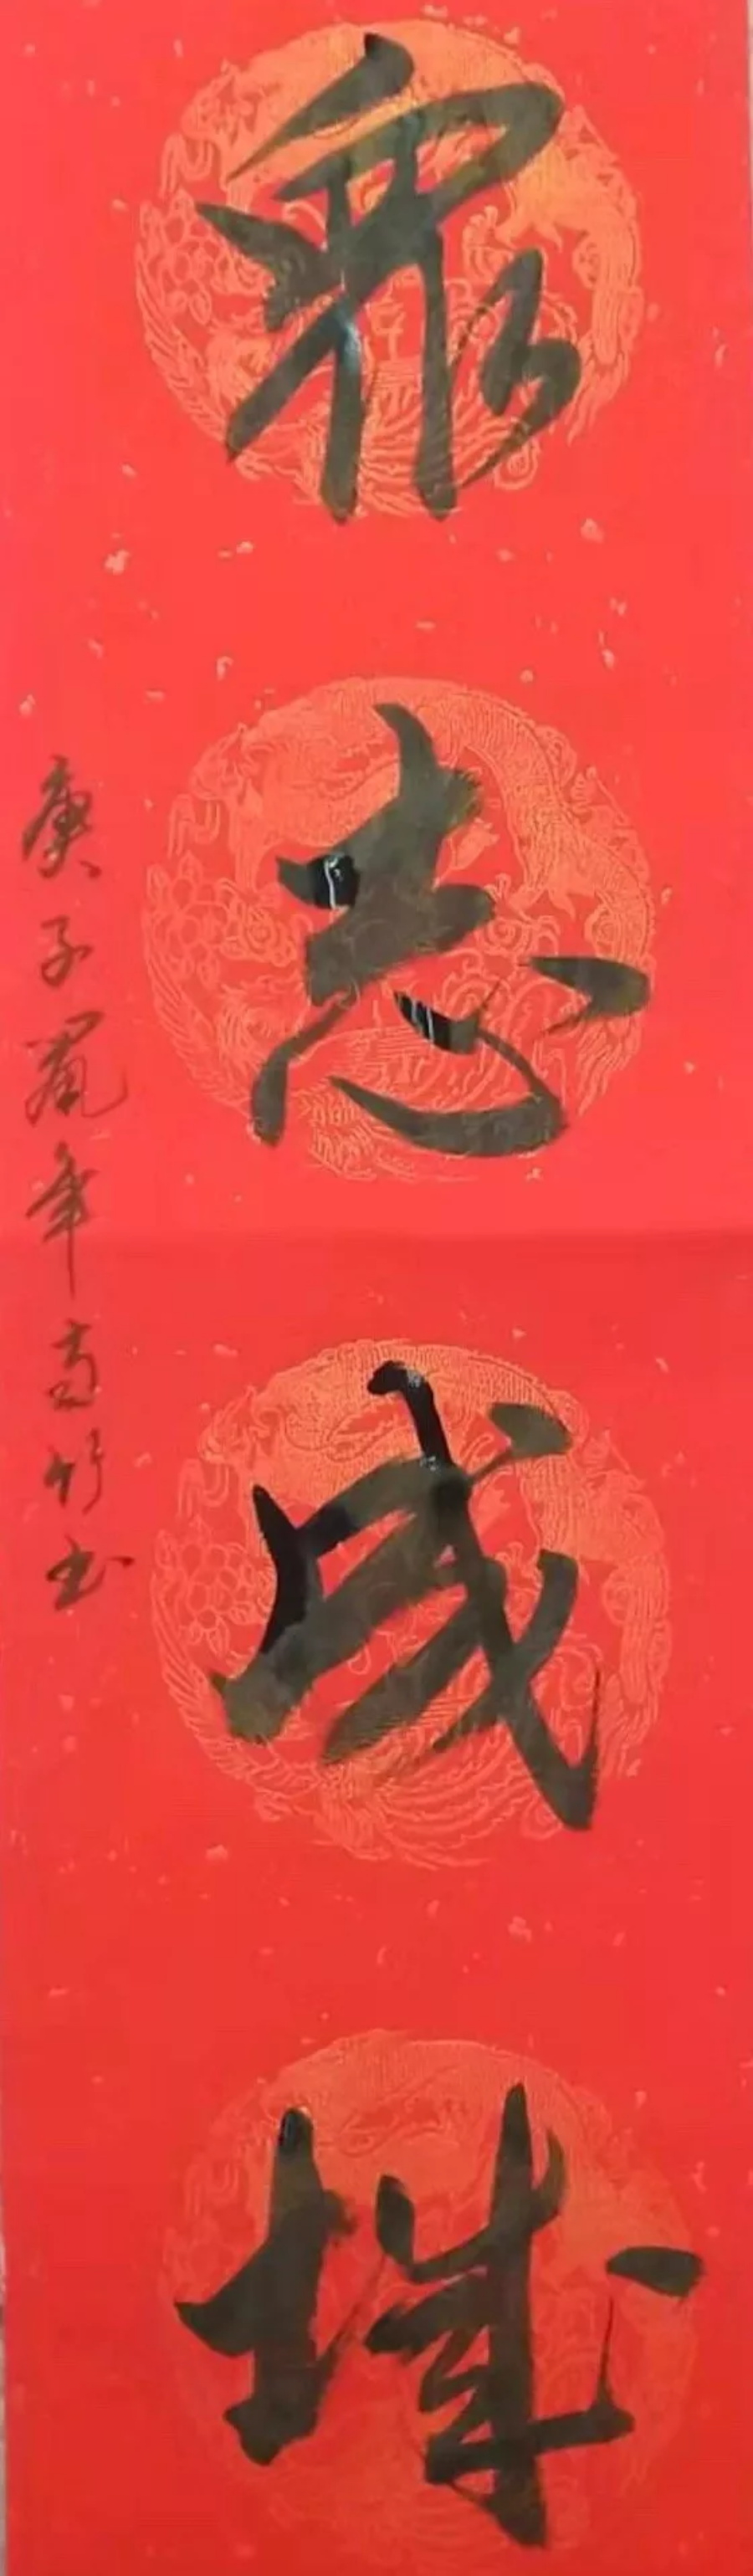 众志成城
庚子鼠年高竹书